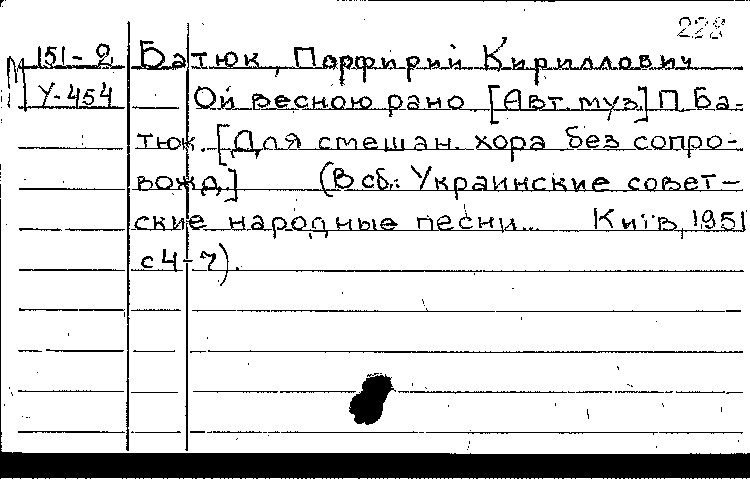 228
М 151-2 Батюк, Порфирий Кириллович
У-454 Ой весною рано [Авт. муз.] П. Ба-
тюк. [Для смешан. хора без сопро-
вожд.] (В сб.: Украинские совет-
ские народные песни... Київ, 1951
с 4-7).